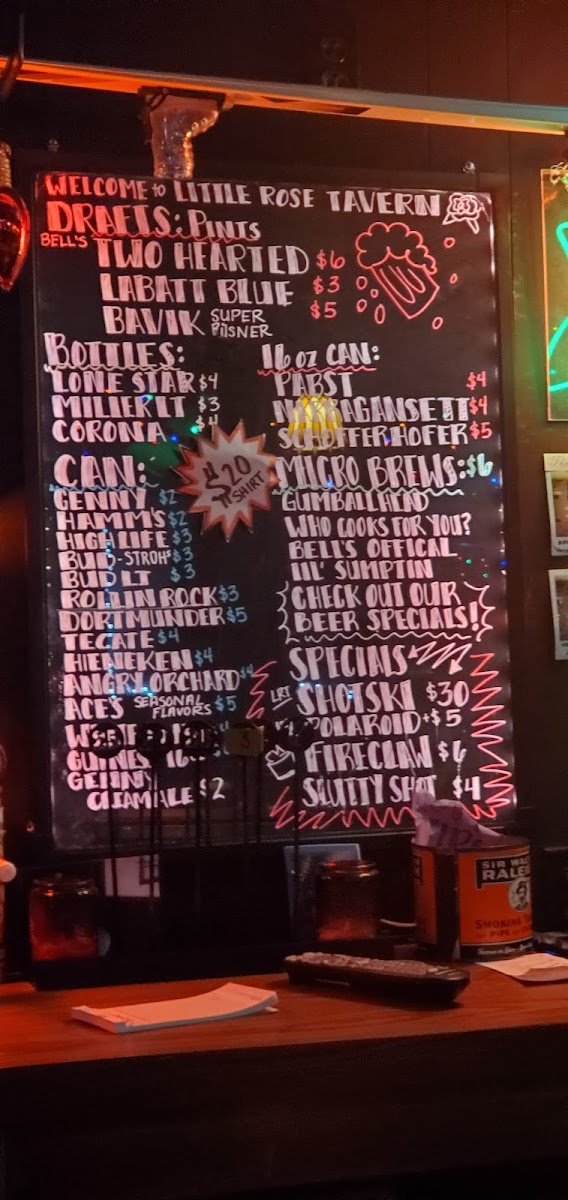 WELCOME to LITTLE ROSE TAVERN
DRAFTS: PINTS
BELL'S TWO HEARTED $6
LABATT BLUE $3
BAVIK SUPER PILSNER $5
BOTTLES:
LONE STAR $4
MILLER LT $3
CORONA $4
CAN:
GENNY $2
HAMM'S $2
HIGH LIFE $3
BUD-STROH'S $3
BUD LT $3
ROLLIN ROCK $3
DORTMUNDER $5
TECATE $4
HIENEKEN $4
ANGRY ORCHARD $4
ACE'S SEASONAL FLAVORS $5
GUINNESS 16
GENNY
CREAM ALE $2
$20
T SHIRT
16 oz CAN:
PABST $4
NARRAGANSETT $4
SCHOFFERHOFER $5
MICRO BREWS: $6
GUMBALLHEAD
WHO COOKS FOR YOU?
BELL'S OFFICAL
LIL' SUMPTIN
CHECK OUT OUR
BEER SPECIALS!
SPECIALS
LRT SHOTSKI $30
POLAROID +$5
FIRECLAW $6
SLUTTY SHOT $4
SIR WAL
RALEI
SMOKING
PIPE